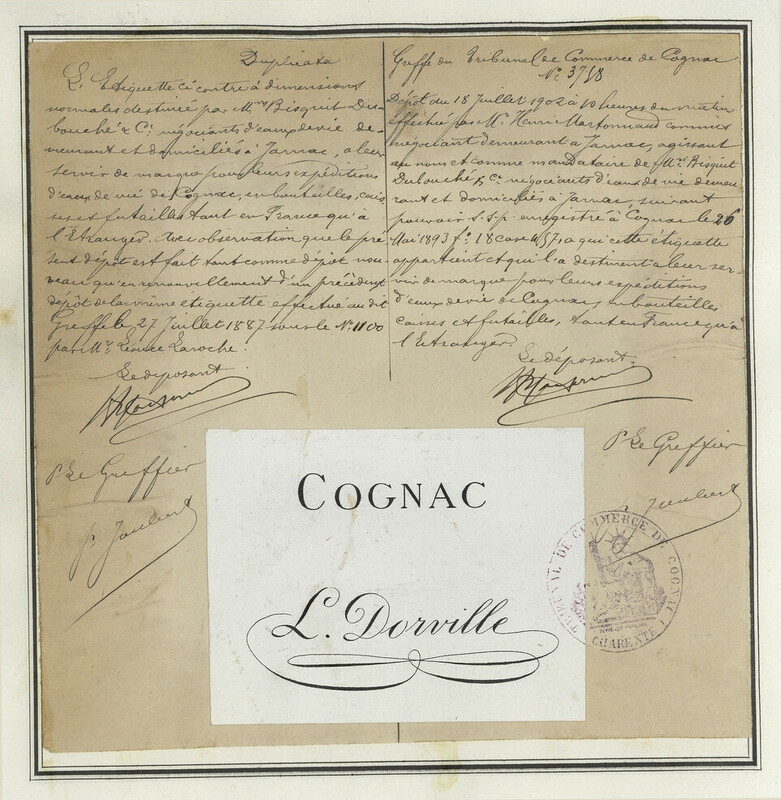 Duplicata
L'Etiquette ci contre à dimensions
normales destinée par Mrs Bisquit Du-
bouché & Cie négociants d'eaux de vie de-
meurant et domiciliés à Jarnac, a leur
servir de marque pour leurs expéditions
d'eaux de vie de Cognac, en bouteilles, cais-
ses et futailles tant en France qu'à
l'Etranger. Avec observation que le pré-
sent dépôt est fait tant comme dépôt nou-
veau qu'en renouvellement d'un précédent
dépôt de la même étiquette effectué au dit
Greffe le 27 Juillet 1887 sous le No 1100
par Mr Léonce Laroche.
Le déposant
Pr Le Greffier
P. Joubert
Greffe du Tribunal de Commerce de Cognac
No 3758
Dépôt du 18 Juillet 1902 à 10 heures du matin
effectué par Mr Henri Martonnaud commis
négociant demeurant à Jarnac, agissant
au nom et comme mandataire de Mrs Bisquit
Dubouché & Cie négociants d'eaux de vie demeu-
rant et domiciliés à Jarnac, suivant
pouvoir s.s.p. enregistré à Cognac le 26
Mai 1893 fo 18 case 457, a qui cette étiquette
appartient et qui l'a destinent a leur ser-
vir de marque pour leurs expéditions
d'eaux de vie de Cognac, en bouteilles
caisses et futailles, tant en France qu'à
l'Etranger.
Le déposant
Pr Le Greffier
Joubert
COGNAC
L. Dorville
TRIBUNAL DE COMMERCE DE COGNAC
CHARENTE